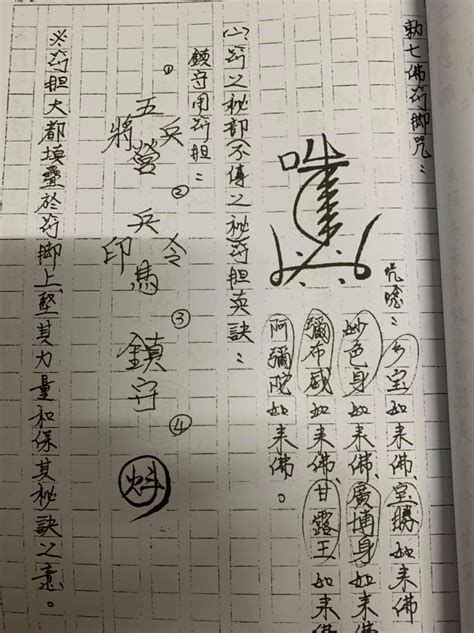 勅七佛符脚咒：
咒唸：多宝如来佛、宝勝如来佛
妙色身如来佛、廣博身如来佛
彌布威如来佛、甘露王如来佛
阿彌陀如来佛。
(二)符之秘部不傳之秘符胆英訣：
鎮守用符胆：
① 五營兵將 ② 兵馬令印 ③ 鎮守 ④ 魁
※符胆大都填叠於符脚上整其力量和保其秘訣之意。